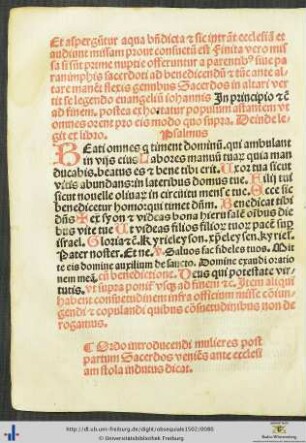 Et aspergūtur aqua bn̄dicta ⁊ sic intrāt ecclesiā et
audiunt missam prout consuetū est Finita vero mis
sa si sūt prime nuptie offeruntur a parentib⁹ siue pa
raninphis sacerdoti ad benedicendū ⁊ tūc ante al
tare manēt flexis genibus Sacerdos in altari ver
tit se legendo euangeliū iohannis In principio ⁊c̄
ad finem, postea exhortatur populum astantem vt
omnes orent pro eis modo quo supra. Deinde le
git ex libro. Psalmus
BEati omnes q̄ timent dominū, qui ambulant
in vijs eius Labores manuū tuar̄ quia man
ducabis, beatus es ⁊ bene tibi erit. Uxor tua sicut
vitis abundans: in lateribus domus tue. Filij tui
sicut nouelle oliuar̄ in circuitu mense tue. Ecce sic
benedicetur homo: qui timet dn̄m. Benedicat tibi
dn̄s ex syon ⁊ videas bona hierusalē oībus die
bus vite tue Et videas filios filior̄ tuor̄ pacē sup̄
israel. Gloria ⁊c̄. Kyrieleyson. xp̄eleyson. kyriel̄.
Pater noster. Et ne. V. Saluos fac fideles tuos. Mit
te eis domine auxilium de sancto. Domine exaudi oratio
nem meā. cū benedictione. Deus qui potestate vir
tutis, vt supra ponit̄ vsq̄ ad finem ⁊c̄. Item aliqui
habent consuetudinem infra officium misse cōiun
gendi ⁊ copulandi quibus cōsuetudinibus non de
rogamus.
¶ Ordo introducendi mulieres post
partum Sacerdos veniēs ante ecclesi
am stola indutus dicat.
http://dl.ub.uni-freiburg.de/diglit/obsequiale1502/0080
© Universitätsbibliothek Freiburg